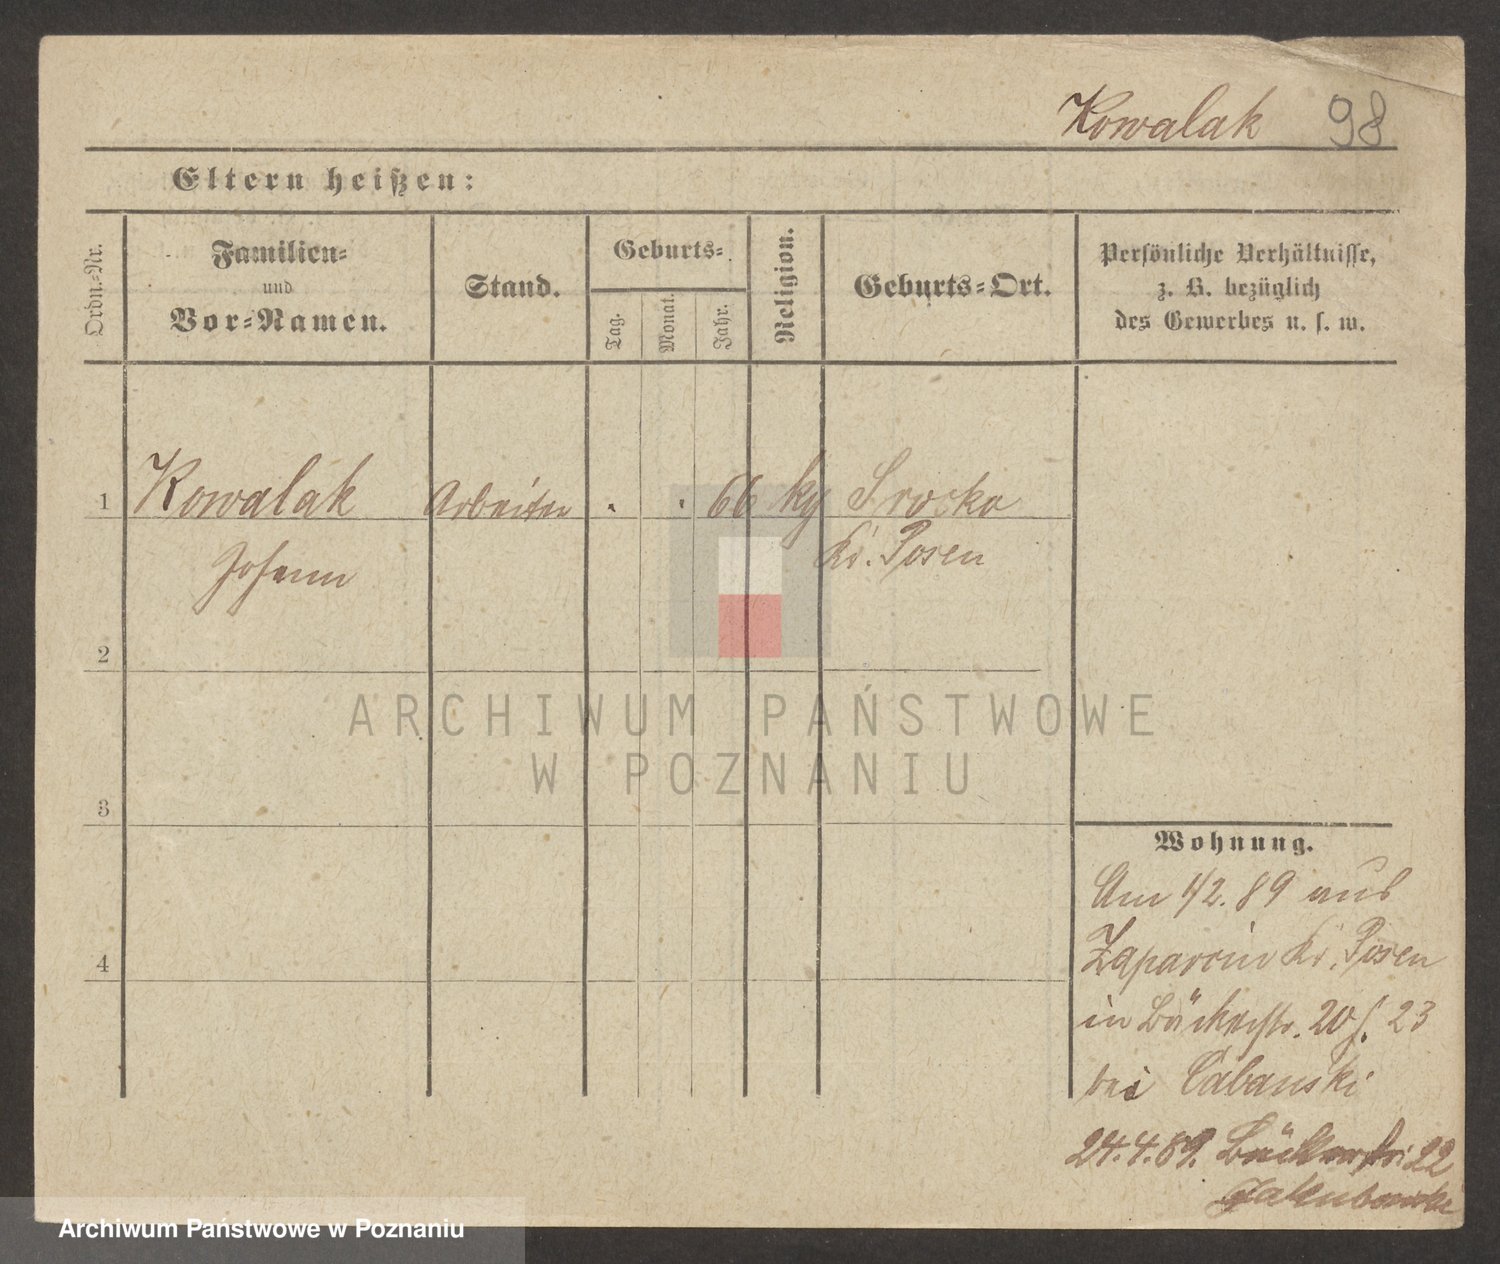 Kowalak 98
Eltern heißen:
Ordn.-Nr.
Familien-
und
Vor-Namen.
Stand.
Geburts-
Tag.
Monat.
Jahr.
Religion.
Geburts-Ort.
Persönliche Verhältnisse,
z. B. bezüglich
des Gewerbes u. s. w.
1 Kowalak Arbeiter . . 66 kg Srocko
Johann Kr. Posen
2
3
4
Wohnung.
Am 1/2. 89 aus
Zaparcin Kr. Posen
in Bäckerstr. 20 f. 23
bei Cabanski
24.4.89. Bäckerstr. 22
ARCHIWUM PAŃSTWOWE
W POZNANIU
Archiwum Państwowe w Poznaniu